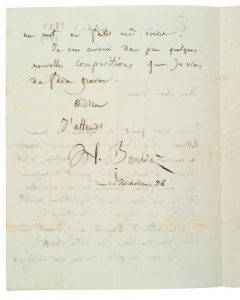 un mot ou faites moi écrire.
Je vous enverrai dans peu quelques
nouvelles compositions que je viens
de faire graver.
Adieu
J'attends
H. Berlioz
rue de Richelieu 96